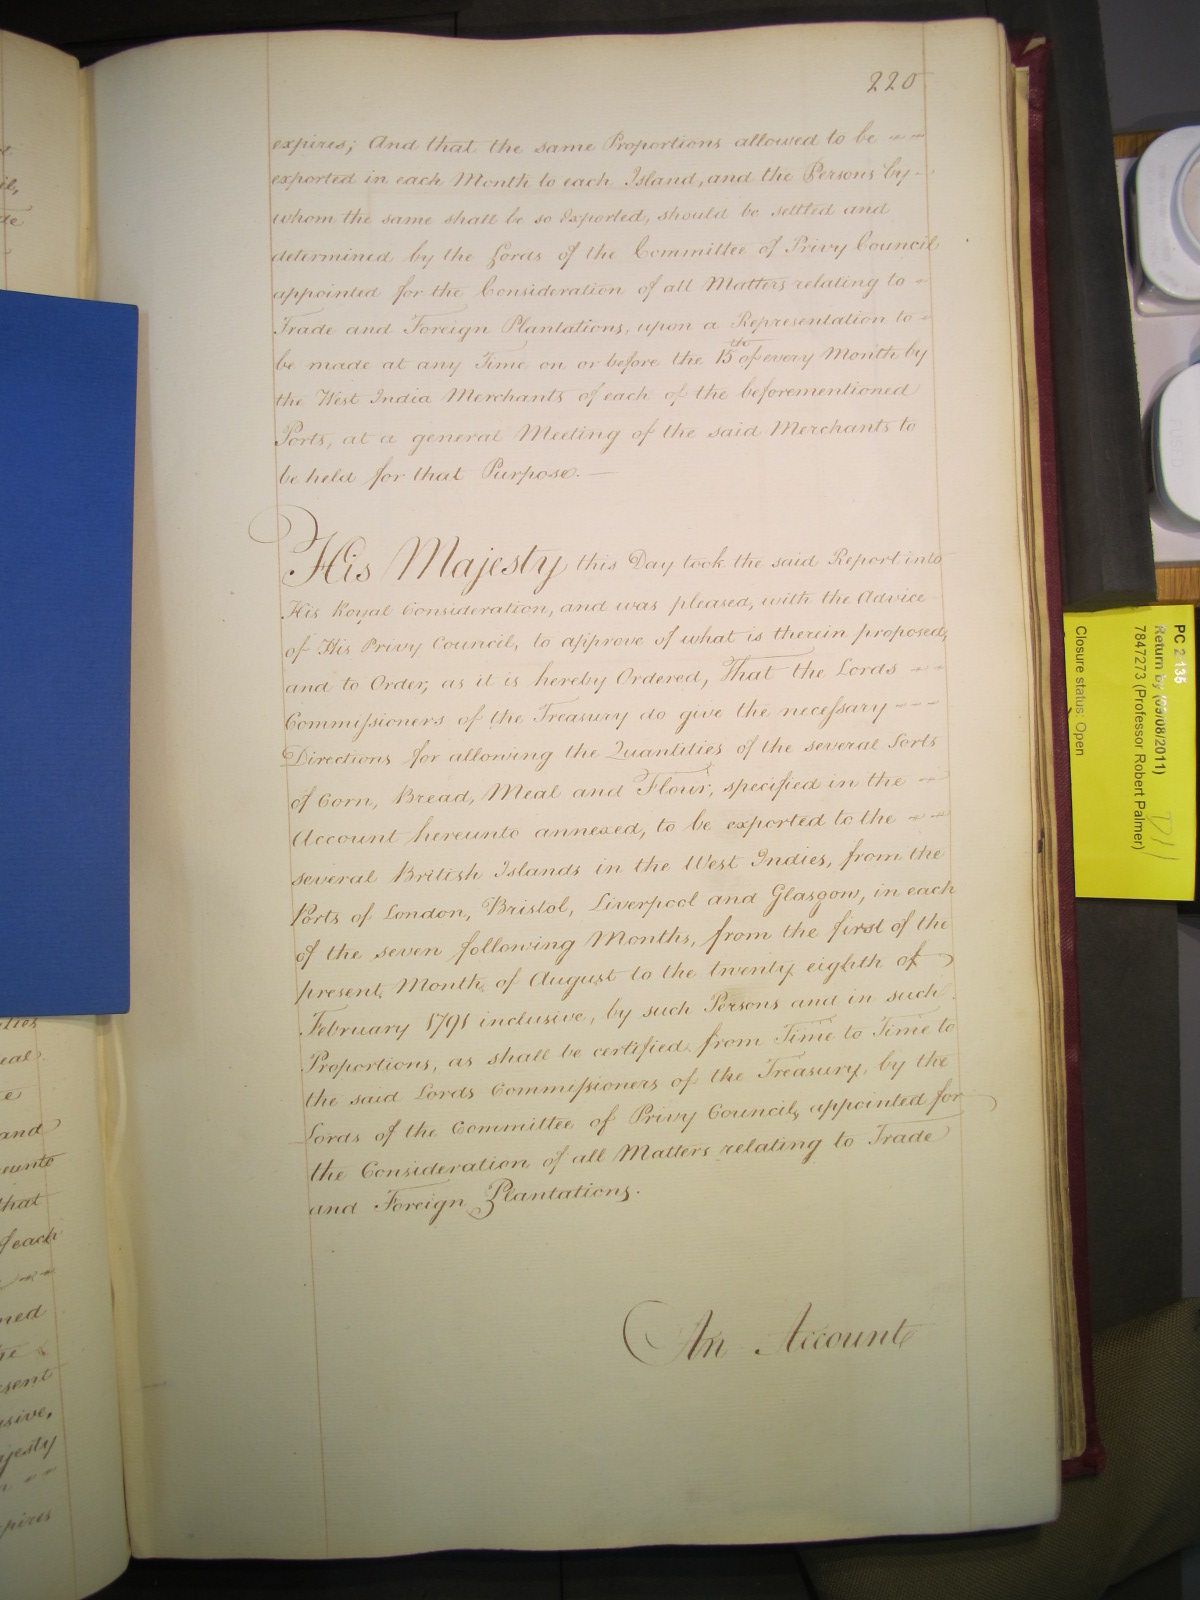 220
expires; And that the same Proportions allowed to be
exported in each Month to each Island, and the Persons by
whom the same shall be so Exported, should be settled and
determined by the Lords of the Committee of Privy Council
appointed for the Consideration of all Matters relating to
Trade and Foreign Plantations, upon a Representation to
be made at any Time on or before the 15th of every Month by
the West India Merchants of each of the beforementioned
Ports, at a general Meeting of the said Merchants to
be held for that Purpose. —
His Majesty this Day took the said Report into
His Royal Consideration, and was pleased, with the Advice
of His Privy Council, to approve of what is therein proposed,
and to Order, as it is hereby Ordered, That the Lords
Commissioners of the Treasury do give the necessary
Directions for allowing the Quantities of the several Sorts
of Corn, Bread, Meal and Flour, specified in the
Account hereunto annexed, to be exported to the
several British Islands in the West Indies, from the
Ports of London, Bristol, Liverpool and Glasgow, in each
of the seven following Months, from the first of the
present Month of August to the twenty eighth of
February 1791 inclusive, by such Persons and in such
Proportions, as shall be certified from Time to Time to
the said Lords Commissioners of the Treasury, by the
Lords of the Committee of Privy Council, appointed for
the Consideration of all Matters relating to Trade
and Foreign Plantations.
An Account
PC 2 135
Return by (09/08/2011)
7847273 (Professor Robert Palmer)
Closure status: Open
and
that
of each
sent
usive,
jesty
pires